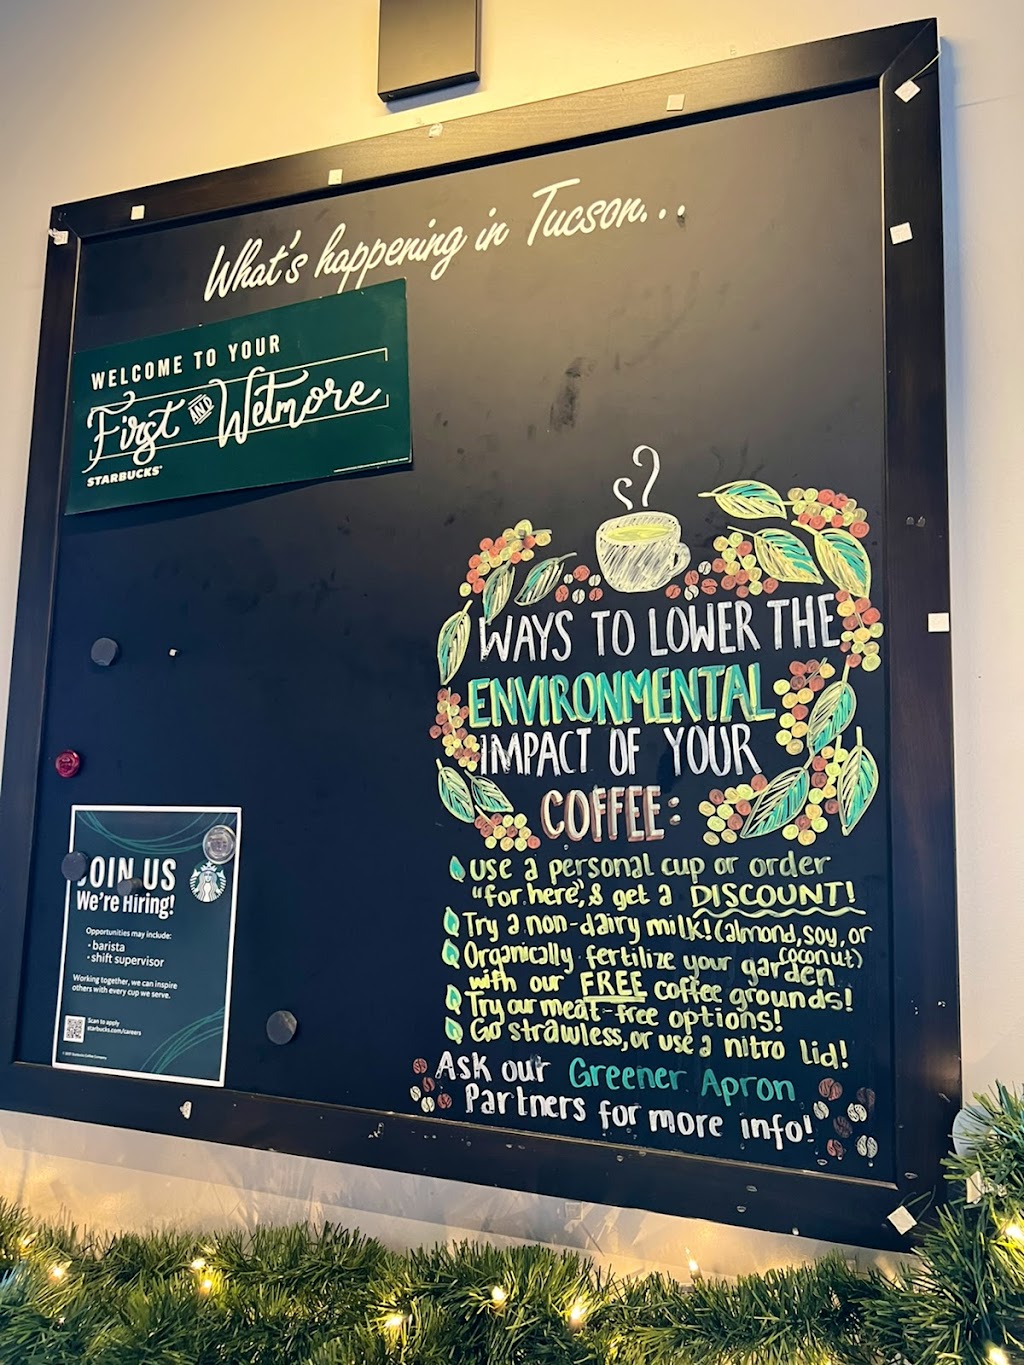 What's happening in Tucson...
WELCOME TO YOUR
First AND Wetmore
STARBUCKS®
WAYS TO LOWER THE
ENVIRONMENTAL
IMPACT OF YOUR
COFFEE:
use a personal cup or order
"for here", & get a DISCOUNT!
Try a non-dairy milk! (almond, soy, or
coconut)
Organically fertilize your garden
with our FREE coffee grounds!
Try our meat-free options!
Go strawless, or use a nitro lid!
Ask our Greener Apron
Partners for more info!
JOIN US
We're Hiring!
Opportunities may include:
• barista
• shift supervisor
Working together, we can inspire
others with every cup we serve.
Scan to apply
starbucks.com/careers